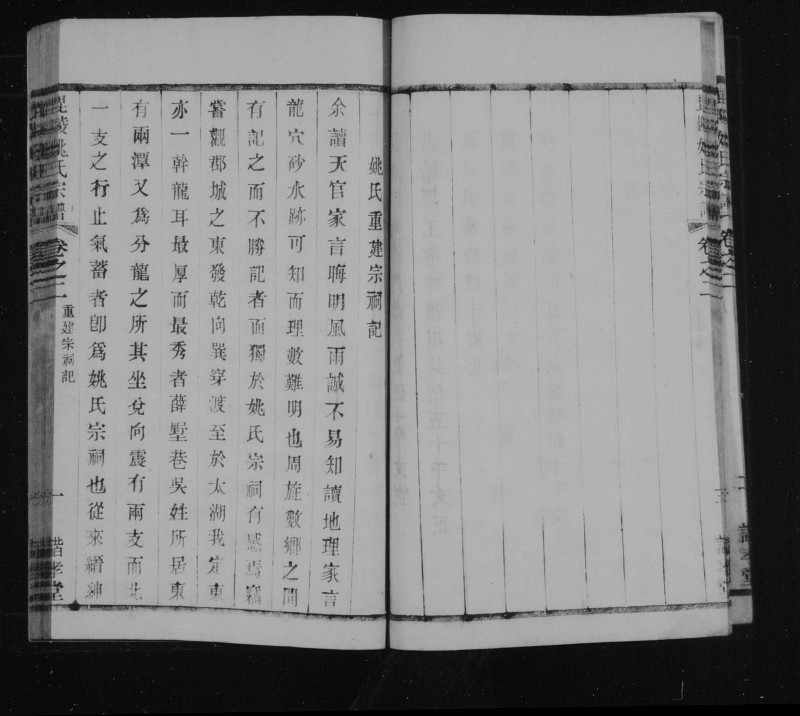 毘陵姚氏宗譜
卷之二
姚氏重建宗祠記
余讀天官家言晦明風雨誠不易知讀地理家言
龍穴砂水跡可知而理數難明也周旋數鄉之間
有記之而不勝記者而獨於姚氏宗祠有感焉竊
嘗觀郡城之東發乾向巽穿渡至於太湖我定東
亦一幹龍耳最厚而最秀者薛墅巷吳姓所居東
有兩潭又為分龍之所其坐兌向震有兩支而北
一支之行止氣蓄者卽為姚氏宗祠也從來縉紳
毘陵姚氏宗譜
卷之二
重建宗祠記
一
孝堂